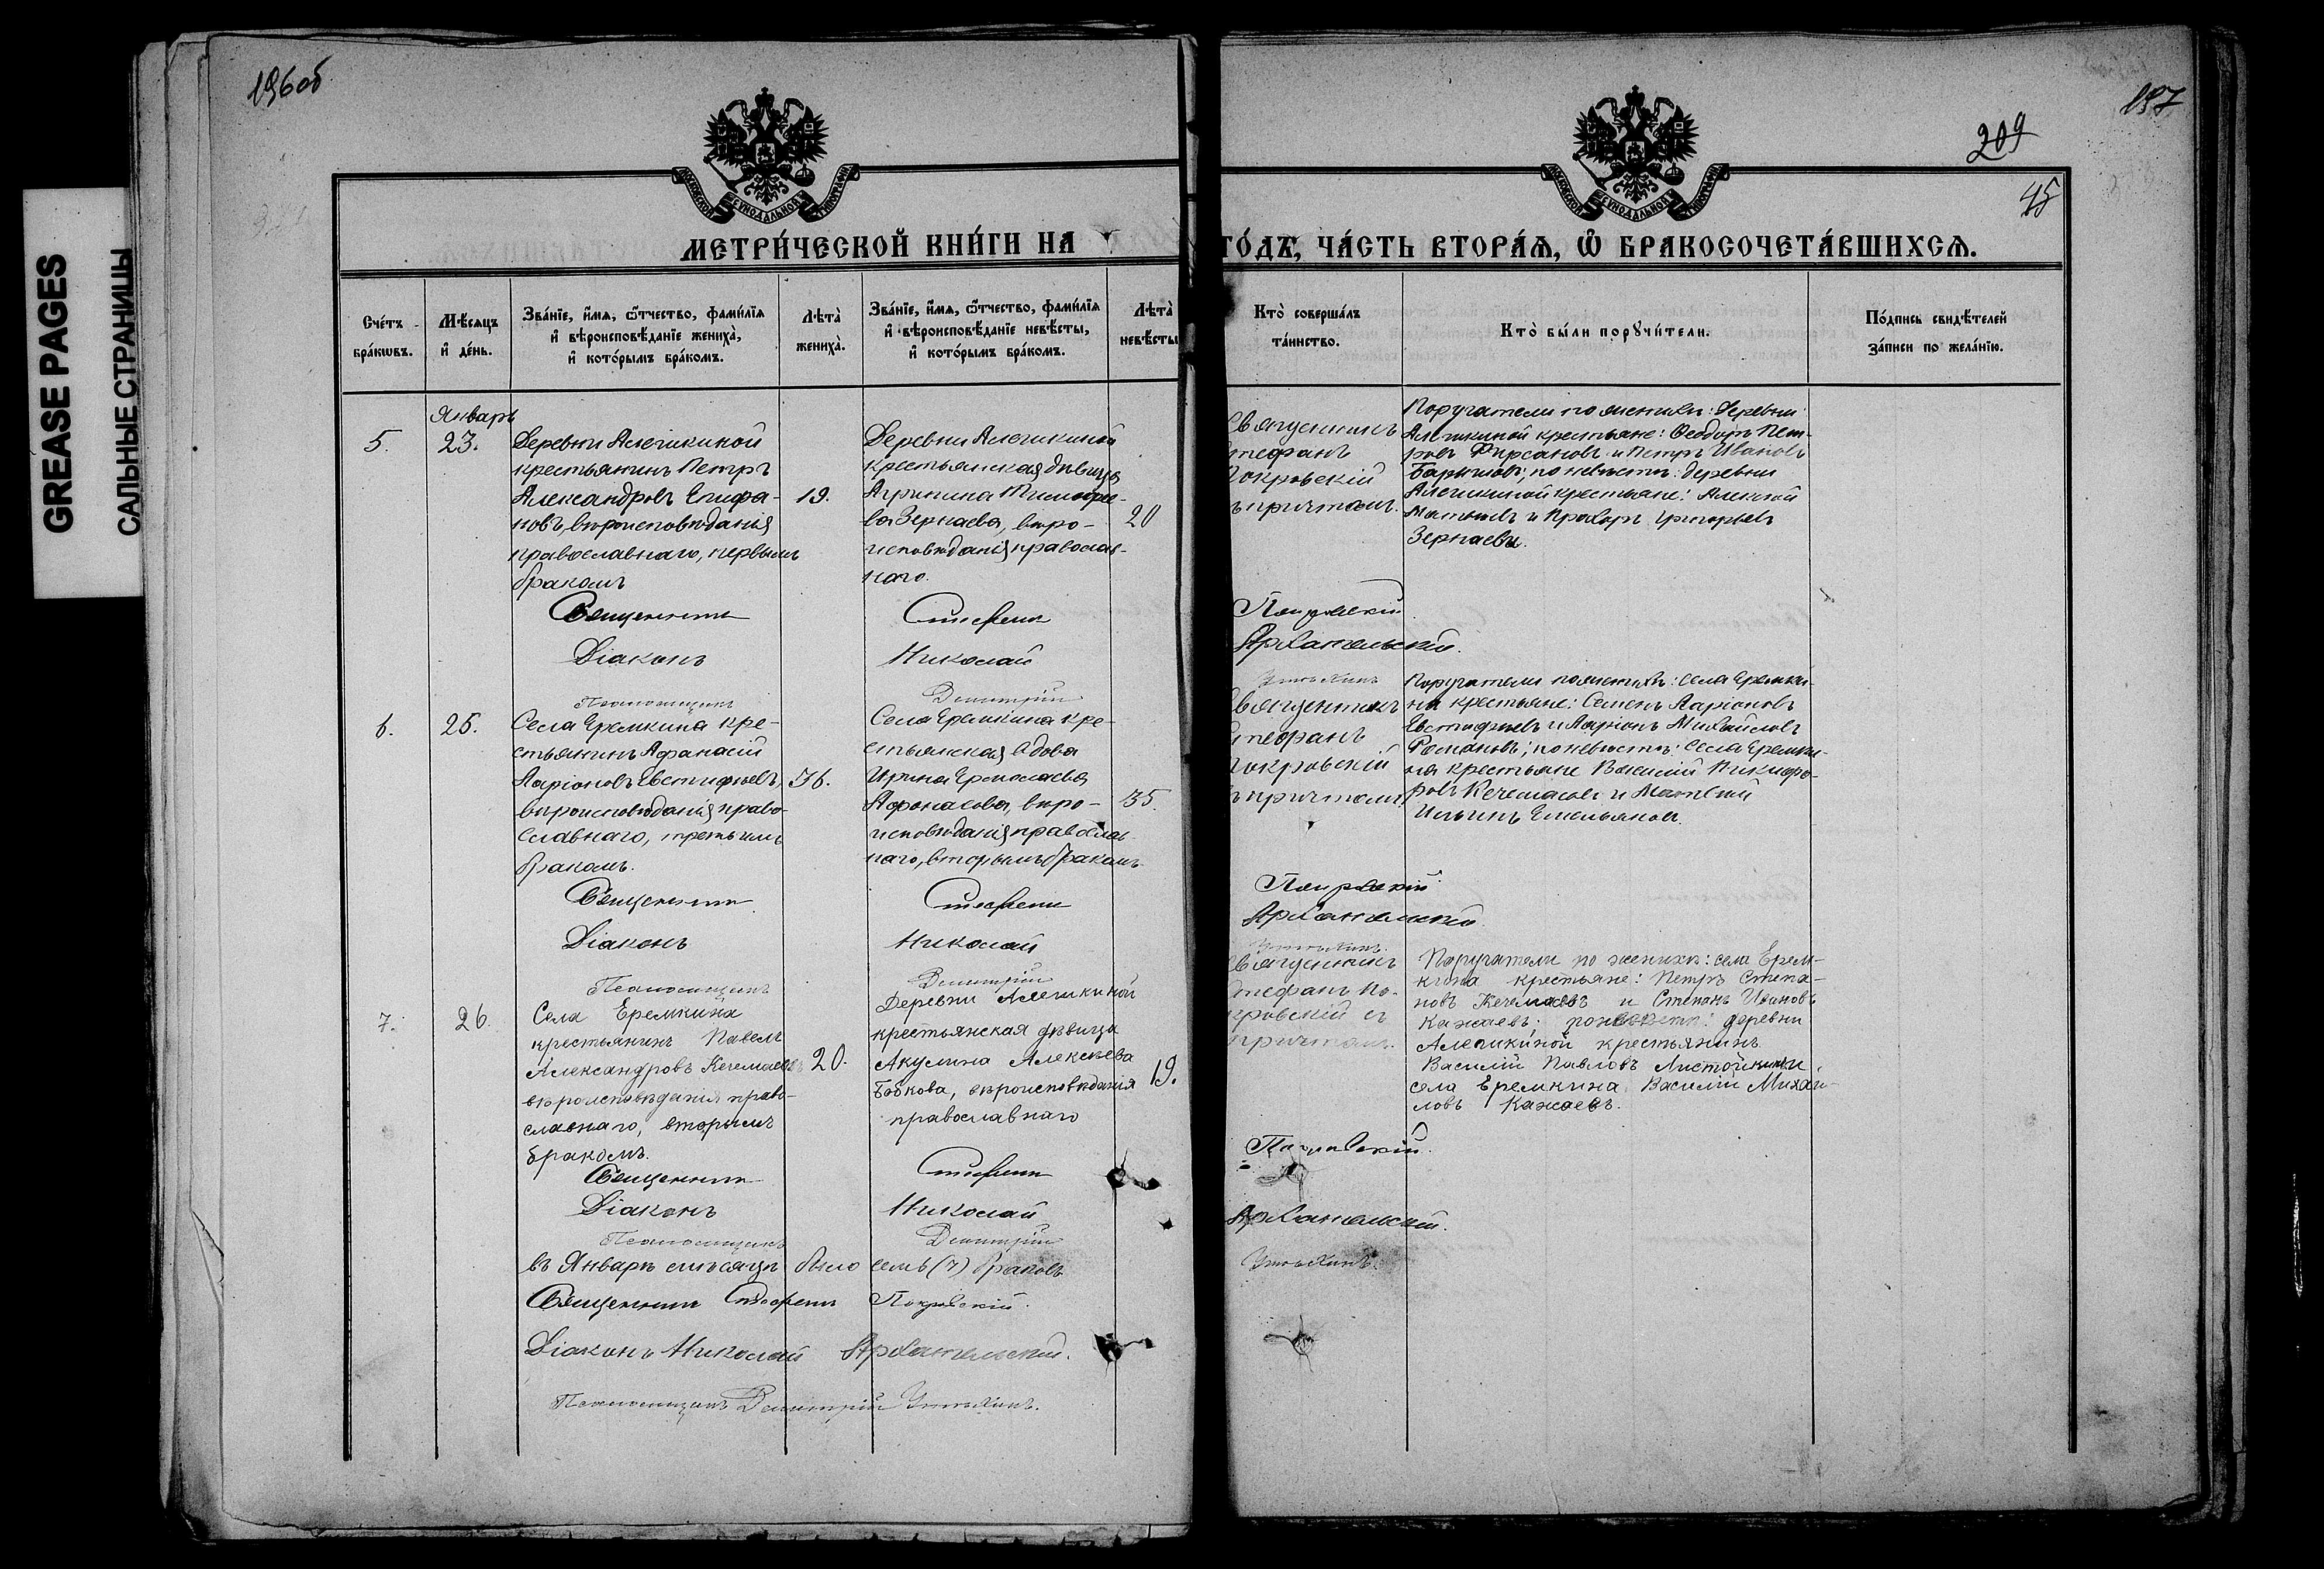 196об
197
209
45
GREASE PAGES
САЛЬНЫЕ СТРАНИЦЫ
МОСКОВСКОЙ СѴНОДАЛЬНОЙ ТИПОГРАФІИ
МОСКОВСКОЙ СѴНОДАЛЬНОЙ ТИПОГРАФІИ
МЕТРИ́ЧЕСКОЙ КНИ́ГИ НА
ГО́ДЪ, ЧА́СТЬ ВТОРА́Ѧ, Ѽ БРАКОСОЧЕТА́ВШИХСѦ.
Сче́тъ
бра́кѡвъ.
Мѣ́сяцъ
и҆ де́нь.
Зва́нїе, и҆́мѧ, ѻ҆́тчество, фами́лїѧ
и҆ вѣроисповѣ́данїе жениха̀,
и҆ кото́рымъ бра́комъ.
Лѣта̀
жениха̀.
Зва́нїе, и҆́мѧ, ѻ҆́тчество, фами́лїѧ
и҆ вѣроисповѣ́данїе невѣ́сты,
и҆ кото́рымъ бра́комъ.
Лѣта̀
невѣ́сты
Кто̀ соверша́лъ
та́инство.
Кто̀ бы́ли порꙋчи́тели.
По́дпись свидѣ́телей
за́писи по жела́нїю.
Январь
5.
23.
Деревни Алешкиной
крестьянинъ Петръ
Александровъ Епифа-
новъ, вѣроисповѣданія
православнаго, первымъ
бракомъ
19.
Деревни Алешкиной
крестьянская дѣвица
Агрипина Тимофее-
ва Зернаева, вѣро-
исповѣданія православ-
наго.
20
Священникъ
Стефанъ
Покровскій
съ причтомъ.
Поручатели по женихѣ: деревни
Алешкиной крестьяне: Феодоръ Пет-
ровъ Фирсановъ и Петръ Ивановъ
Барышовъ; по невѣстѣ: деревни
Алешкиной крестьяне: Алексѣй
и Прохоръ Григорьевъ
Зернаевы.
Священникъ Стефанъ Покровскій
Діаконъ Николай Архангельскій.
Псаломщикъ Димитрій
6.
25.
Села Еремкина кре-
стьянинъ Афанасій
Ларіоновъ Евстифѣевъ,
вѣроисповѣданія право-
славнаго, третьимъ
бракомъ.
36.
Села Еремкина кре-
стьянская вдова
Ирина Ермолаева
Афонасова, вѣро-
исповѣданія православ-
наго, вторымъ бракомъ.
35.
Священникъ
Стефанъ
Покровскій
съ причтомъ
Поручатели по женихѣ: села Еремки-
на крестьяне: Семенъ Ларіоновъ
Евстифѣевъ и Ларіонъ Михайловъ
Романовъ; по невѣстѣ: села Еремки-
на крестьяне Василій Никифо-
ровъ Кечемасовъ и Матвѣй
Ильинъ Емельяновъ.
Священникъ Стефанъ Покровскій
Діаконъ Николай Архангельскій
Псаломщикъ Димитрій
7.
26.
Села Еремкина
крестьянинъ Павелъ
Александровъ Кечемаевъ
вѣроисповѣданія право-
славнаго, вторымъ
бракомъ.
20.
Деревни Алешкиной
крестьянская дѣвица
Акулина Алексѣева
Бобкова, вѣроисповѣданія
православнаго
19.
Священникъ
Стефанъ По-
кровскій съ
причтомъ.
Поручатели по женихѣ: села Ерем-
кина крестьяне: Петръ Степа-
новъ Кечемаевъ и Степанъ Ивановъ
Кажаевъ; по невѣстѣ: деревни
Алешкиной крестьянинъ
Василій Павловъ Листошкинъ и
села Еремкина Василій Михай-
ловъ Кажаевъ.
Священникъ Стефанъ Покровскій.
Діаконъ Николай Архангельскій.
Псаломщикъ Димитрій
въ Январѣ мѣсяцѣ было семь (7) браковъ
Священникъ Стефанъ Покровскій.
Діаконъ Николай Архангельскій.
Псаломщикъ Димитрій